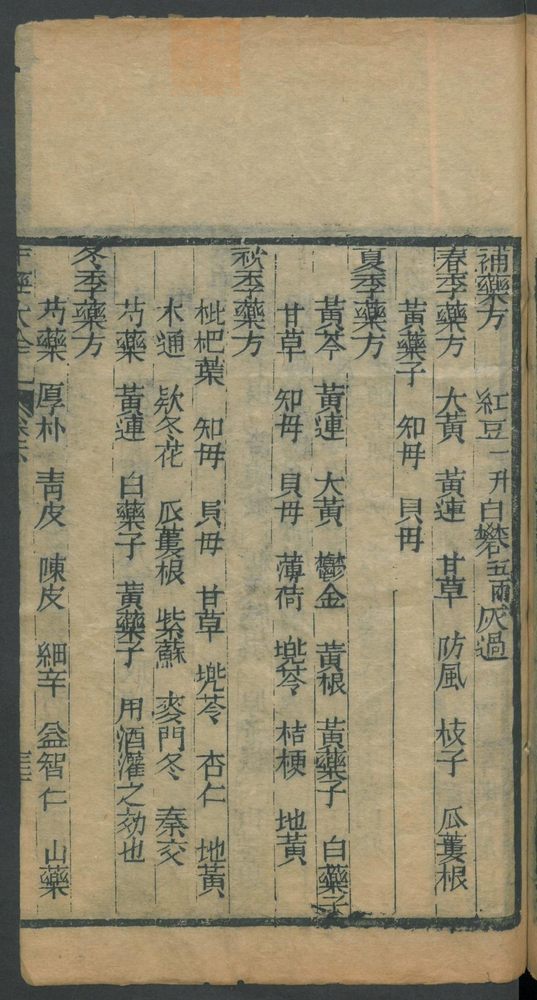 補藥方 紅豆一升白礬五兩灰過
春季藥方 大黃 黃連 甘草 防風 枝子 瓜蔞根
黃藥子 知毋 貝毋
夏季藥方
黃芩 黃連 大黃 鬱金 黃根 黃藥子 白藥子
甘草 知毋 貝毋 薄荷 兠苓 桔梗 地黃
秋季藥方
枇杷葉 知毋 貝毋 甘草 兠苓 杏仁 地黃
木通 欵冬花 瓜蔞根 紫蘇 麥門冬 秦交
芍藥 黃連 白藥子 黃藥子 用酒灌之効也
冬季藥方
芍藥 厚朴 青皮 陳皮 細辛 益智仁 山藥